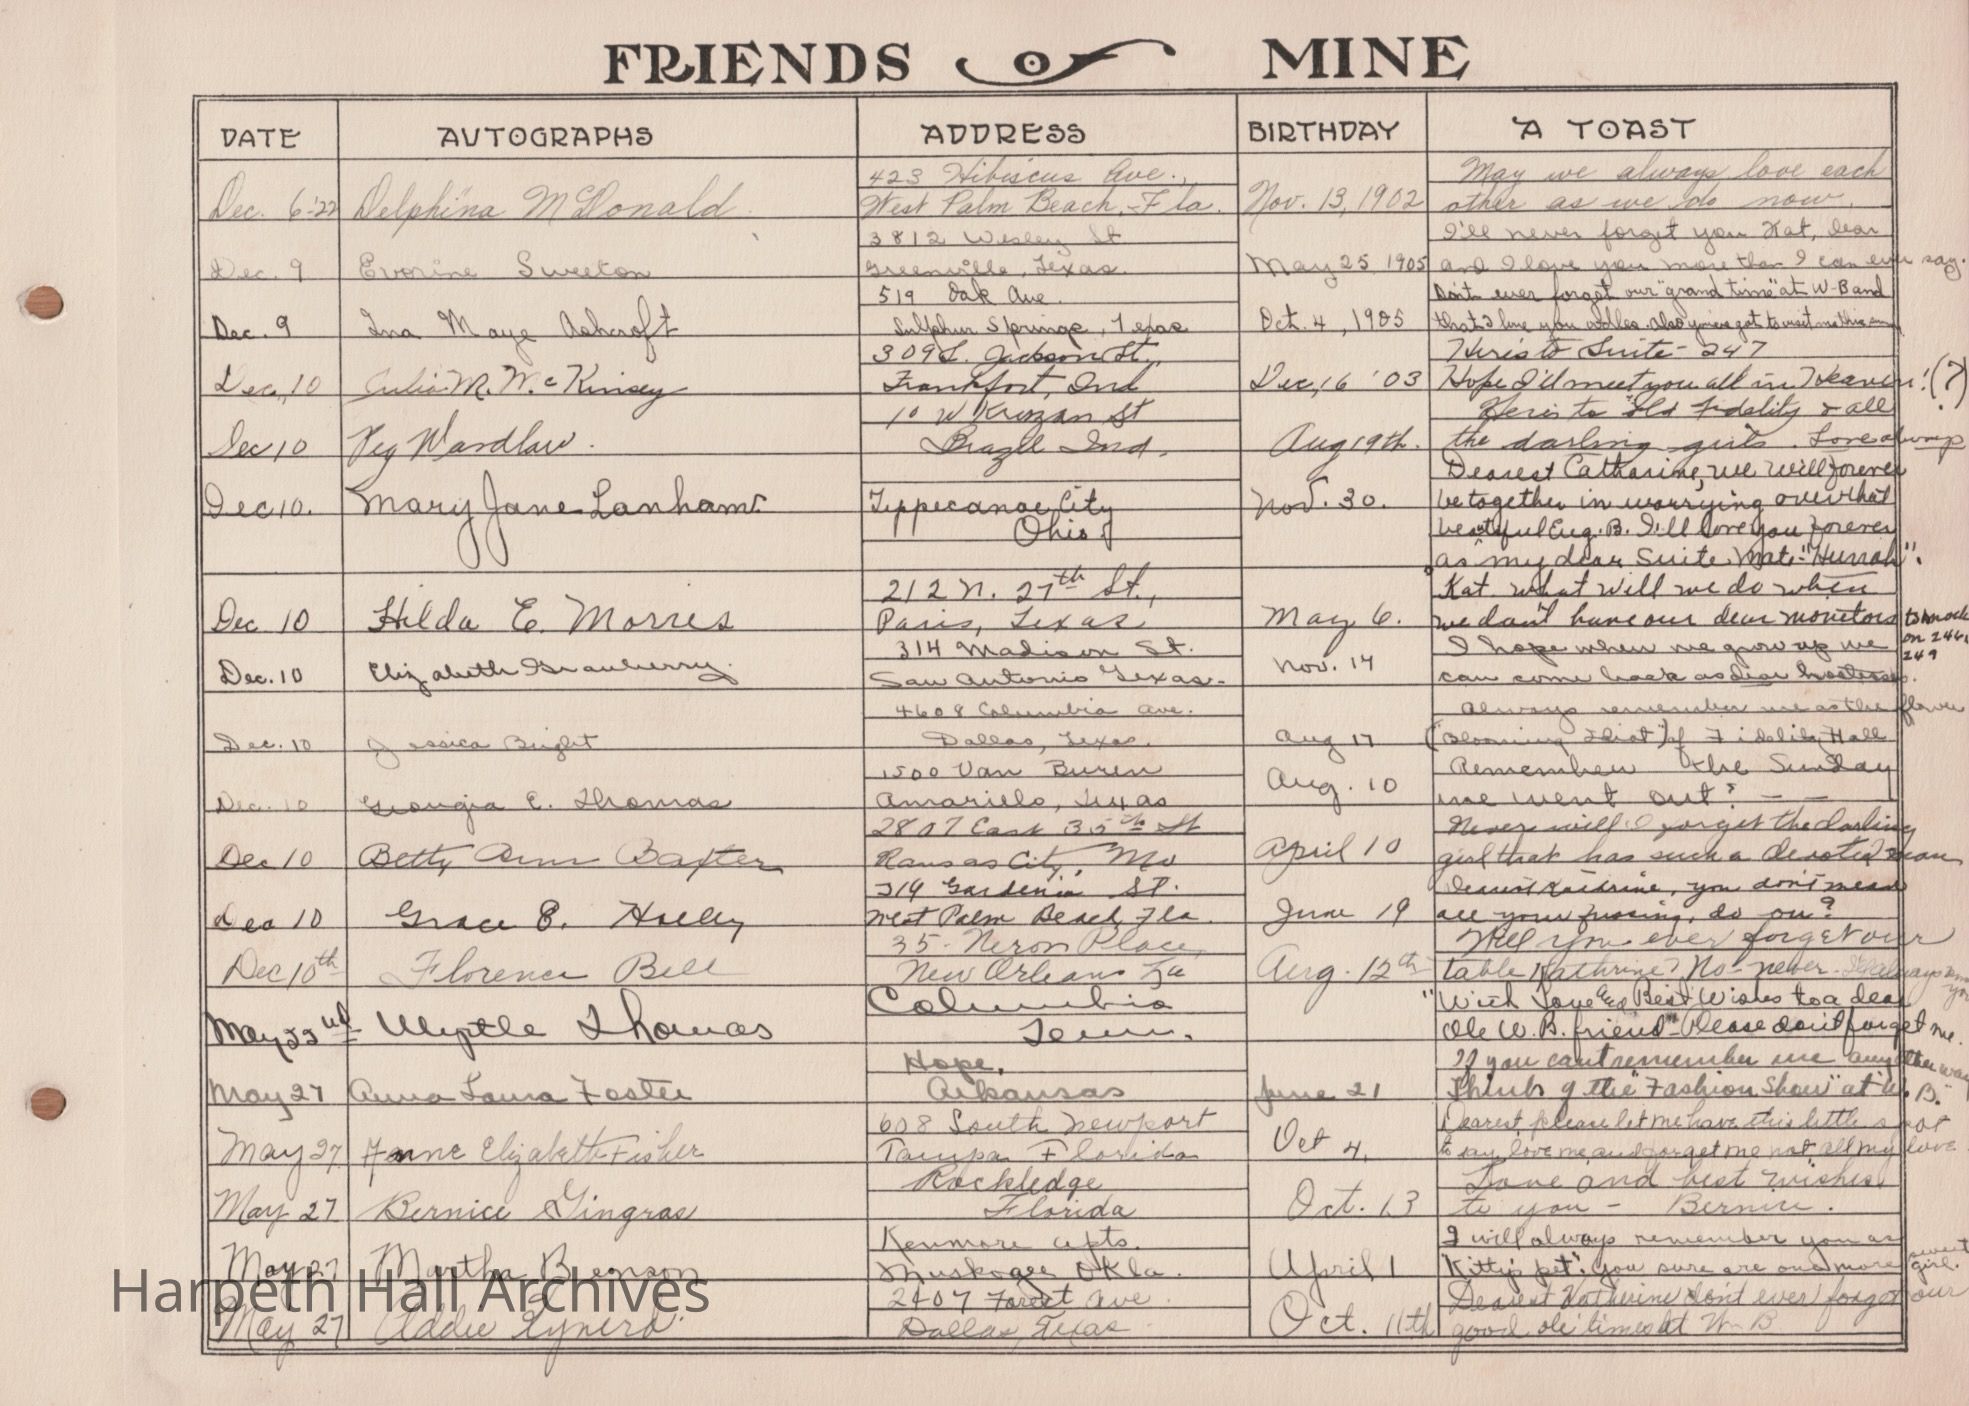 FRIENDS OF MINE
DATE AUTOGRAPHS ADDRESS BIRTHDAY A TOAST
423 Hibiscus Ave., May we always love each
Dec. 6-'22 Delphina McDonald West Palm Beach, Fla. Nov. 13, 1902 other as we do now.
3812 Wesley St I'll never forget you Kat, dear
Dec. 9 Evorine Sweeton Greenville, Texas. May 25, 1905 and I love you more than I can ever say.
519 Oak Ave. Don't ever forget our "grand time" at W-B and
Dec. 9 Ina Maye Ashcroft Sulphur Springs, Texas Oct. 4, 1905 that I love you oddles. Also you've got to visit me this
309 S. Jackson St., Here's to Suite-247
Dec. 10 Julia M. McKinsey Frankfort, Ind Dec, 16 '03 Hope I'll meet you all in Heaven! (?)
10 W St Here's to Old Fidelity & all
Dec 10 Peg Wardlaw. Brazil Ind. Aug 19th. the darling girls. Love always
Dearest Catharine, we will forever
Dec 10. Mary Jane Lanham Tippecanoe City Nov. 30. be together in worrying over that
Ohio beautiful Eng. B. I'll love you forever
as my dear Suite Mate-"Hurrah".
212 N. 27th St., Kat what will we do when
Dec 10 Hilda E. Morris Paris, Texas May 6. we don't have our dear monitors to knock
on 246,
249
314 Madison St. I hope when we grow up we
Dec. 10 Elizabeth Granberry. San Antonio Texas- Nov. 14 can come back as dear hostesses.
4608 Columbia Ave. Always remember me as the flower
Dec. 10 Jessica Bright Dallas, Texas. Aug 17 ("Blooming Idiot") of Fidelity Hall
1500 Van Buren Remember the Sunday
Dec. 10 Georgia E. Thomas Amarillo, Texas Aug. 10 we went out? - -
2807 East 35th St Never will I forget the darling
Dec 10 Betty Ann Baxter Kansas City, Mo April 10 girl that has such a devoted man
319 Gardenia St. Dearest Kathrine, you don't mean
Dec 10 Grace E. Holley West Palm Beach Fla. June 19 all your fussing, do you?
35- Neron Place, Will you ever forget our
Dec 10th Florence Bell New Orleans La Aug. 12th table Kathrine? No-never.
Columbia "With Love and Best Wishes to a dear
May 22nd Myrtle Thomas Tenn. Ole W.B. friend"-Please don't forget me.
Hope, If you can't remember me any other way
May 27 Anna Laura Foster Arkansas June 21 Think of the "Fashion Show" at W. B."
608 South Newport Dearest, please let me have this little spot
May 27 Anne Elizabeth Fisher Tampa Florida Oct 4, to say, love me, and forget me not, all my love
Rockledge Love and best wishes
May 27 Bernice Gingras Florida Oct. 13 to you - Bernice.
Kenmore Apts. I will always remember you as
May 27 Martha Benson Muskogee Okla. April 1 "Kitty's pet". You sure are one more sweet girl.
2407 Forest Ave. Dearest Katherine don't ever forget our
May 27 Addie Dallas, Texas Oct. 11th good ole times at W-B
Harpeth Hall Archives